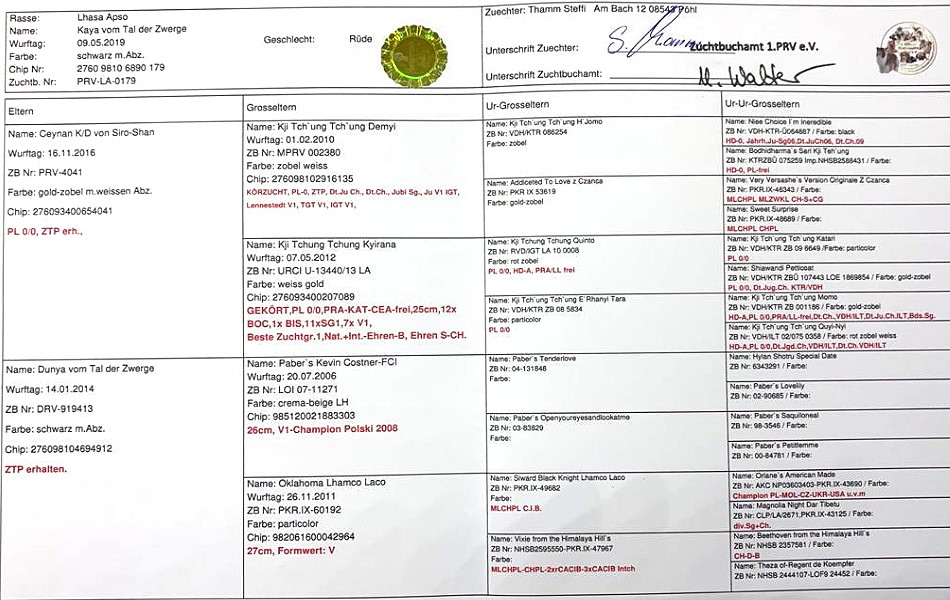 Rasse: Lhasa Apso
Name: Kaya vom Tal der Zwerge
Wurftag: 09.05.2019
Farbe: schwarz m.Abz.
Chip Nr: 2760 9810 6890 179
Zuchtb. Nr: PRV-LA-0179
Geschlecht: Rüde
Zuechter: Thamm Steffi Am Bach 12 08543 Pöhl
Unterschrift Zuechter: S. Thamm
Zuchtbuchamt 1.PRV e.V.
Unterschrift Zuchtbuchamt: M. Walter
Eltern
Name: Ceynan K/D von Siro-Shan
Wurftag: 16.11.2016
ZB Nr: PRV-4041
Farbe: gold-zobel m.weissen Abz.
Chip: 276093400654041
PL 0/0, ZTP erh.,
Name: Dunya vom Tal der Zwerge
Wurftag: 14.01.2014
ZB Nr: DRV-919413
Farbe: schwarz m.Abz.
Chip: 276098104694912
ZTP erhalten.
Grosseltern
Name: Kji Tch`ung Tch`ung Demyi
Wurftag: 01.02.2010
ZB Nr: MPRV 002380
Farbe: zobel weiss
Chip: 276098102916135
KÖRZUCHT, PL-0, ZTP, Dt.Ju Ch., Dt.Ch., Jubi Sg., Ju V1 IGT,
Lennestedt V1, TGT V1, IGT V1,
Name: Kji Tchung Tchung Kyirana
Wurftag: 07.05.2012
ZB Nr: URCI U-13440/13 LA
Farbe: weiss gold
Chip: 276093400207089
GEKÖRT,PL 0/0,PRA-KAT-CEA-frei,25cm,12x
BOC,1x BIS,11xSG1,7x V1,
Beste Zuchtgr.1,Nat.+Int.-Ehren-B, Ehren S-CH.
Name: Paber`s Kevin Costner-FCI
Wurftag: 20.07.2006
ZB Nr: LOI 07-11271
Farbe: crema-beige LH
Chip: 985120021883303
26cm, V1-Champion Polski 2008
Name: Oklahoma Lhamco Laco
Wurftag: 26.11.2011
ZB Nr: PKR.IX-60192
Farbe: particolor
Chip: 982061600042964
27cm, Formwert: V
Ur-Grosseltern
Name: Kji Tch`ung Tch`ung H`Jomo
ZB Nr: VDH/KTR 086254
Farbe: zobel
Name: Addiceted To Love z Czanca
ZB Nr: PKR IX 53619
Farbe: gold-zobel
Name: Kji Tchung Tchung Quinto
ZB Nr: RVD/IGT LA 10 0008
Farbe: rot zobel
PL 0/0, HD-A, PRA/LL frei
Name: Kji Tch`ung Tch`ung E`Rhanyi Tara
ZB Nr: VDH/KTR ZB 08 5834
Farbe: particolor
PL 0/0
Name: Paber`s Tenderlove
ZB Nr: 04-131848
Farbe:
Name: Paber`s Openyoureyesandlookatme
ZB Nr: 03-83829
Farbe:
Name: Siward Black Knight Lhamco Laco
ZB Nr: PKR.IX-49682
Farbe:
MLCHPL C.I.B.
Name: Vixie from the Himalaya Hill`s
ZB Nr: NHSB2595550-PKR.IX-47967
Farbe:
MLCHPL-CHPL-2xrCACIB-3xCACIB Intch
Ur-Ur-Grosseltern
Name: Nise Choice I`m Ineredible
ZB Nr: VDH-KTR-Ü064887 / Farbe: black
HD-0, Jahrh.Ju-Sg06,Dt.JuCh06, Dt.Ch.09
Name: Bodhidharma`s Sari Kji Tch`ung
ZB Nr: KTRZBÜ 075259 Imp.NHSB2588431 / Farbe:
HD-0, PL-frei
Name: Very Versashe`s Version Originale Z Czanca
ZB Nr: PKR.IX-46343 / Farbe:
MLCHPL MLZWKL CH-S+CG
Name: Sweet Surprise
ZB Nr: PKR.IX-48689 / Farbe:
MLCHPL CHPL
Name: Kji Tch`ung Tch`ung Katari
ZB Nr: VDH/KTR ZB 09 6649 /Farbe: particolor
PL 0/0
Name: Shiawandi Petticoat
ZB Nr: VDH/KTR ZBÜ 107443 LOE 1869854 / Farbe: gold-zobel
PL 0/0, Dt.Jug.Ch. KTR/VDH
Name: Kji Tch`ung Tch`ung Momo
ZB Nr: VDH/KTR ZB 001186 / Farbe: gold-zobel
HD-A,PL 0/0,PRA/LL-frei,Dt.Ch.,VDH/ILT,Dt.Ju.Ch.ILT,Bds.Sg.
Name: Kji Tch`ung Tch`ung Quyi-Nyi
ZB Nr: VDH/ILT 02/075 0358 / Farbe: rot zobel weiss
HD-A,PL 0/0,Dt.Jgd.Ch,VDH/ILT,Dt.Ch.VDH/ILT
Name: Hylan Shotru Special Date
ZB Nr: 6343291 / Farbe:
Name: Paber`s Lovelily
ZB Nr: 02-90685 / Farbe:
Name: Paber`s Saquiloneal
ZB Nr: 98-3546 / Farbe:
Name: Paber`s Petitlemme
ZB Nr: 00-84781 / Farbe:
Name: Orlane`s American Made
ZB Nr: AKC NP03603403-PKR.IX-43690 / Farbe:
Champion PL-MOL-CZ-UKR-USA u.v.m
Name: Magnolia Night Dar Tibetu
ZB Nr: CLP/LA/2671,PKR.IX-43125 / Farbe:
div.Sg+Ch.
Name: Beethoven from the Himalaya Hill`s
ZB Nr: NHSB 2357581 / Farbe:
CH-D-B
Name: Theza of-Regent de Koempfer
ZB Nr: NHSB 2444107-LOF9 24452 / Farbe: